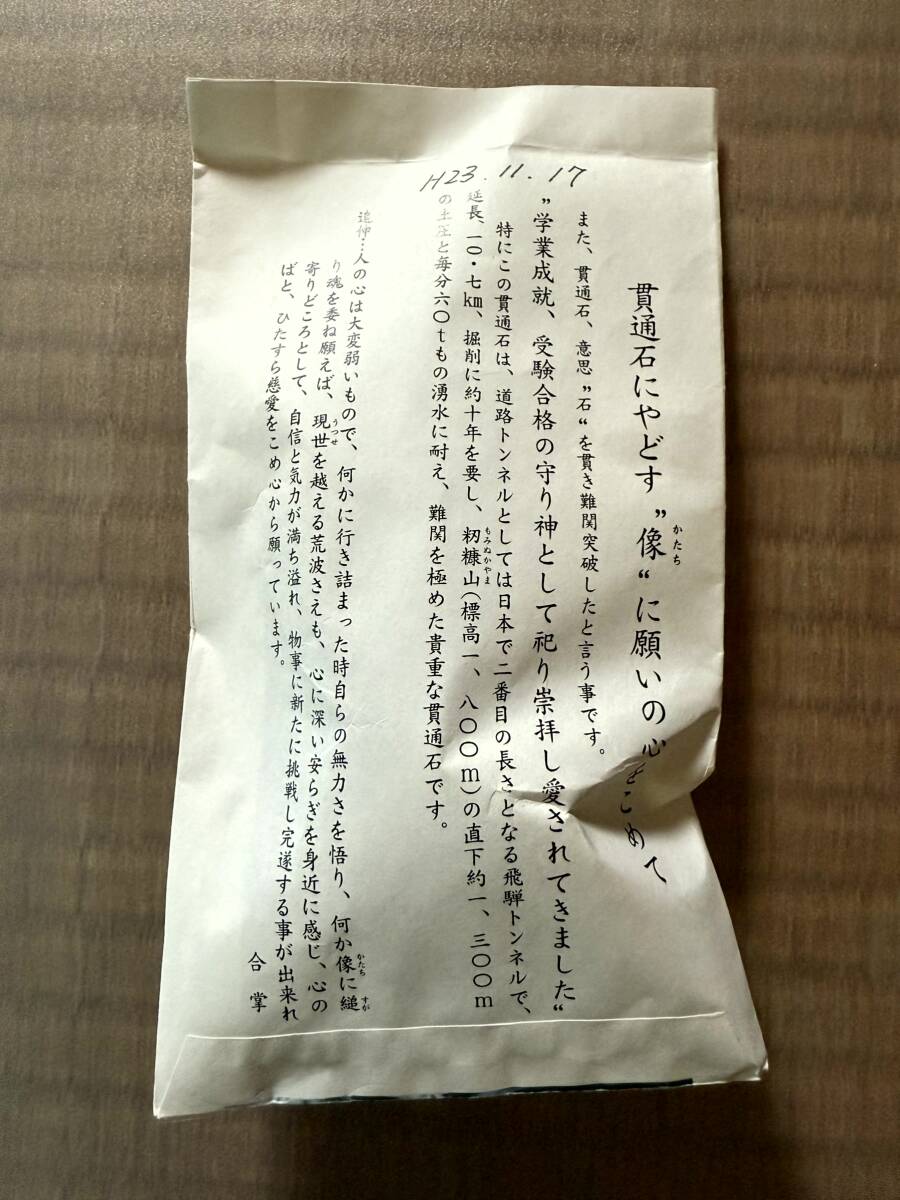 H23.11.17
貫通石にやどす〝像〟に願いの心をこめて
かたち
また、貫通石、意思〝石〟を貫き難関突破したと言う事です。
〝学業成就、受験合格の守り神として祀り崇拝し愛されてきました〟
特にこの貫通石は、道路トンネルとしては日本で二番目の長さとなる飛騨トンネルで、
延長、一〇・七km、掘削に約十年を要し、籾糠山(標高一、八〇〇m)の直下約一、三〇〇m
もみぬかやま
の土圧と毎分六〇tもの湧水に耐え、難関を極めた貴重な貫通石です。
追伸…人の心は大変弱いもので、何かに行き詰まった時自らの無力さを悟り、何か像に縋
かたち
すが
り魂を委ね願えば、現世を越える荒波さえも、心に深い安らぎを身近に感じ、心の
うつせ
寄りどころとして、自信と気力が満ち溢れ、物事に新たに挑戦し完遂する事が出来れ
ばと、ひたすら慈愛をこめ心から願っています。
合掌